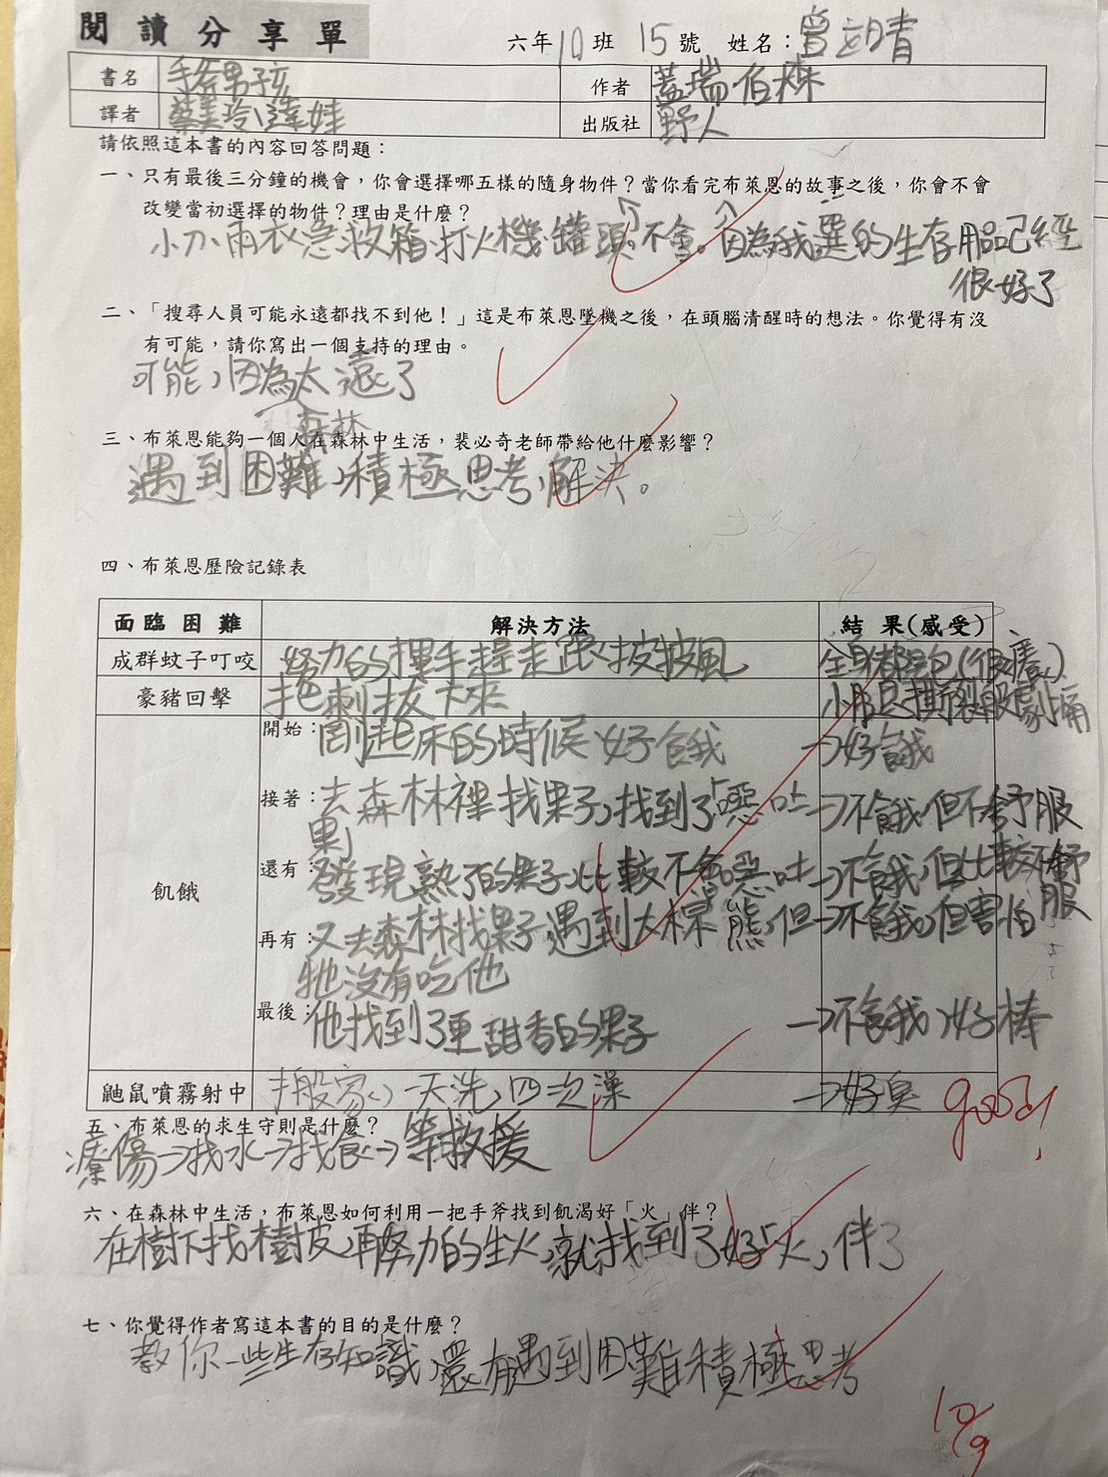 閱讀分享單
六年10班 15號 姓名：曾立晴
書名 手斧男孩 作者 蓋瑞伯森
譯者 蔡美玲、達娃 出版社 野人
請依照這本書的內容回答問題：
一、只有最後三分鐘的機會，你會選擇哪五樣的隨身物件？當你看完布萊恩的故事之後，你會不會
改變當初選擇的物件？理由是什麼？
小刀、雨衣、急救箱、打火機、罐頭。不會。因為我選的生存用品已經
很好了
二、「搜尋人員可能永遠都找不到他！」這是布萊恩墜機之後，在頭腦清醒時的想法。你覺得有沒
有可能，請你寫出一個支持的理由。
可能，因為太遠了
森林
三、布萊恩能夠一個人在森林中生活，裴必奇老師帶給他什麼影響？
遇到困難，積極思考，解決。
四、布萊恩歷險記錄表
面臨困難 解決方法 結果(感受)
成群蚊子叮咬 努力的揮手趕走跟披披風 全身都是包(很癢)
豪豬回擊 把刺拔下來 小腿撕裂般劇痛
開始：剛起床的時候好餓 →好餓
接著：去森林裡找果子，找到了「噁吐 →不餓，但不舒服
果」
還有：發現熟了的果子，比較不會噁吐 →不餓，但比較不舒
服
飢餓
再有：又去森林找果子，遇到大棕熊，但 →不餓，但害怕
牠沒有吃他
最後：他找到了更甜香的果子 →不餓，好棒
鼬鼠噴霧射中 搬家、一天洗四次澡 →好臭
good!
五、布萊恩的求生守則是什麼？
療傷→找水→找食→等救援
六、在森林中生活，布萊恩如何利用一把手斧找到飢渴好「火」伴？
在樹下找樹皮，再努力的生火，就找到了好「火」伴了
七、你覺得作者寫這本書的目的是什麼？
教你一些生存知識，還有遇到困難積極思考
10/9